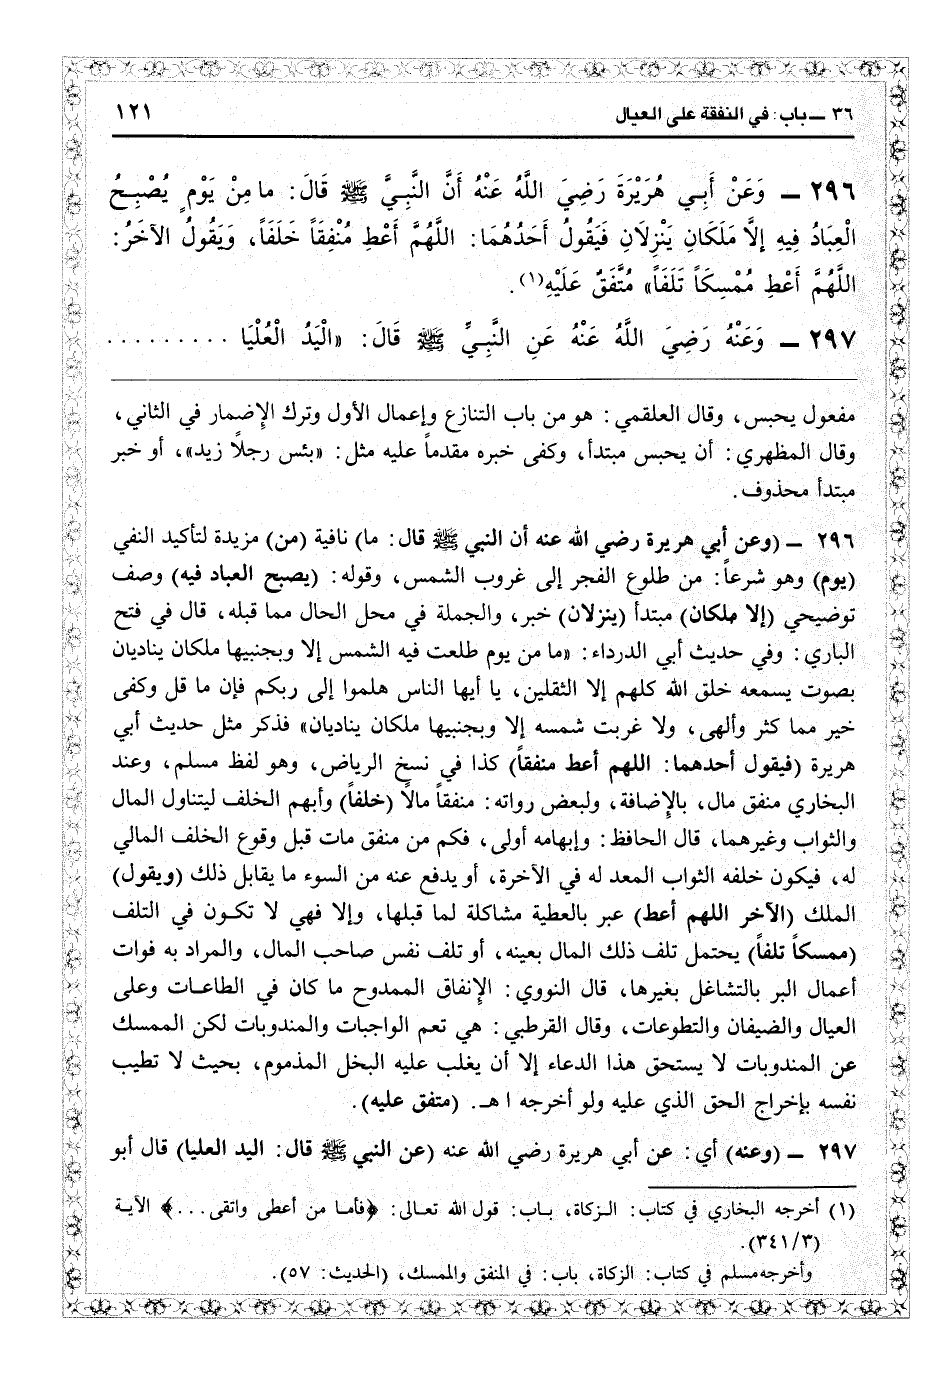 ٣٦ ــ باب: في النفقة على العيال
١٢١
٢٩٦ ــ وَعَنْ أَبِي هُرَيْرَةَ رَضِيَ اللَّهُ عَنْهُ أَنَّ النَّبِيَّ ﷺ قَالَ: مَا مِنْ يَوْمٍ يُصْبِحُ
الْعِبَادُ فِيهِ إلَّا مَلَكَانِ يَنْزِلَانِ فَيَقُولُ أَحَدُهُمَا: اللَّهُمَّ أَعْطِ مُنْفِقَاً خَلَفَاً، وَيَقُولُ الآخَرُ:
اللَّهُمَّ أَعْطِ مُمْسِكَاً تَلَفَاً» مُتَّفَقٌ عَلَيْهِ(١).
٢٩٧ ــ وَعَنْهُ رَضِيَ اللَّهُ عَنْهُ عَنِ النَّبِيِّ ﷺ قَالَ: «الْيَدُ الْعُلْيَا . . . . . . . . .
مفعول يحبس، وقال العلقمي: هو من باب التنازع وإعمال الأول وترك الإضمار في الثاني،
وقال المظهري: أن يحبس مبتدأ، وكفى خبره مقدماً عليه مثل: «بئس رجلاً زيد»، أو خبر
مبتدأ محذوف.
٢٩٦ ــ (وعن أبي هريرة رضي الله عنه أن النبي ﷺ قال: ما) نافية (من) مزيدة لتأكيد النفي
(يوم) وهو شرعاً: من طلوع الفجر إلى غروب الشمس، وقوله: (يصبح العباد فيه) وصف
توضيحي (إلا ملكان) مبتدأ (ينزلان) خبر، والجملة في محل الحال مما قبله، قال في فتح
الباري: وفي حديث أبي الدرداء: «ما من يوم طلعت فيه الشمس إلا وبجنبيها ملكان يناديان
بصوت يسمعه خلق الله كلهم إلا الثقلين، يا أيها الناس هلموا إلى ربكم فإن ما قل وكفى
خير مما كثر وألهى، ولا غربت شمسه إلا وبجنبيها ملكان يناديان» فذكر مثل حديث أبي
هريرة (فيقول أحدهما: اللهم أعط منفقاً) كذا في نسخ الرياض، وهو لفظ مسلم، وعند
البخاري منفق مال، بالإضافة، ولبعض رواته: منفقاً مالاً (خلفاً) وأبهم الخلف ليتناول المال
والثواب وغيرهما، قال الحافظ: وإبهامه أولى، فكم من منفق مات قبل وقوع الخلف المالي
له، فيكون خلفه الثواب المعد له في الآخرة، أو يدفع عنه من السوء ما يقابل ذلك (ويقول)
الملك (الآخر اللهم أعط) عبر بالعطية مشاكلة لما قبلها، وإلا فهي لا تكون في التلف
(ممسكاً تلفاً) يحتمل تلف ذلك المال بعينه، أو تلف نفس صاحب المال، والمراد به فوات
أعمال البر بالتشاغل بغيرها، قال النووي: الإنفاق الممدوح ما كان في الطاعات وعلى
العيال والضيفان والتطوعات، وقال القرطبي: هي تعم الواجبات والمندوبات لكن الممسك
عن المندوبات لا يستحق هذا الدعاء إلا أن يغلب عليه البخل المذموم، بحيث لا تطيب
نفسه بإخراج الحق الذي عليه ولو أخرجه ا هـ. (متفق عليه).
٢٩٧ ــ (وعنه) أي: عن أبي هريرة رضي الله عنه (عن النبي ﷺ قال: اليد العليا) قال أبو
(١) أخرجه البخاري في كتاب: الزكاة، باب: قول الله تعالى: ﴿فأما من أعطى واتقى...﴾ الآية
(٣٤١/٣).
وأخرجه مسلم في كتاب: الزكاة، باب: في المنفق والممسك، (الحديث: ٥٧).